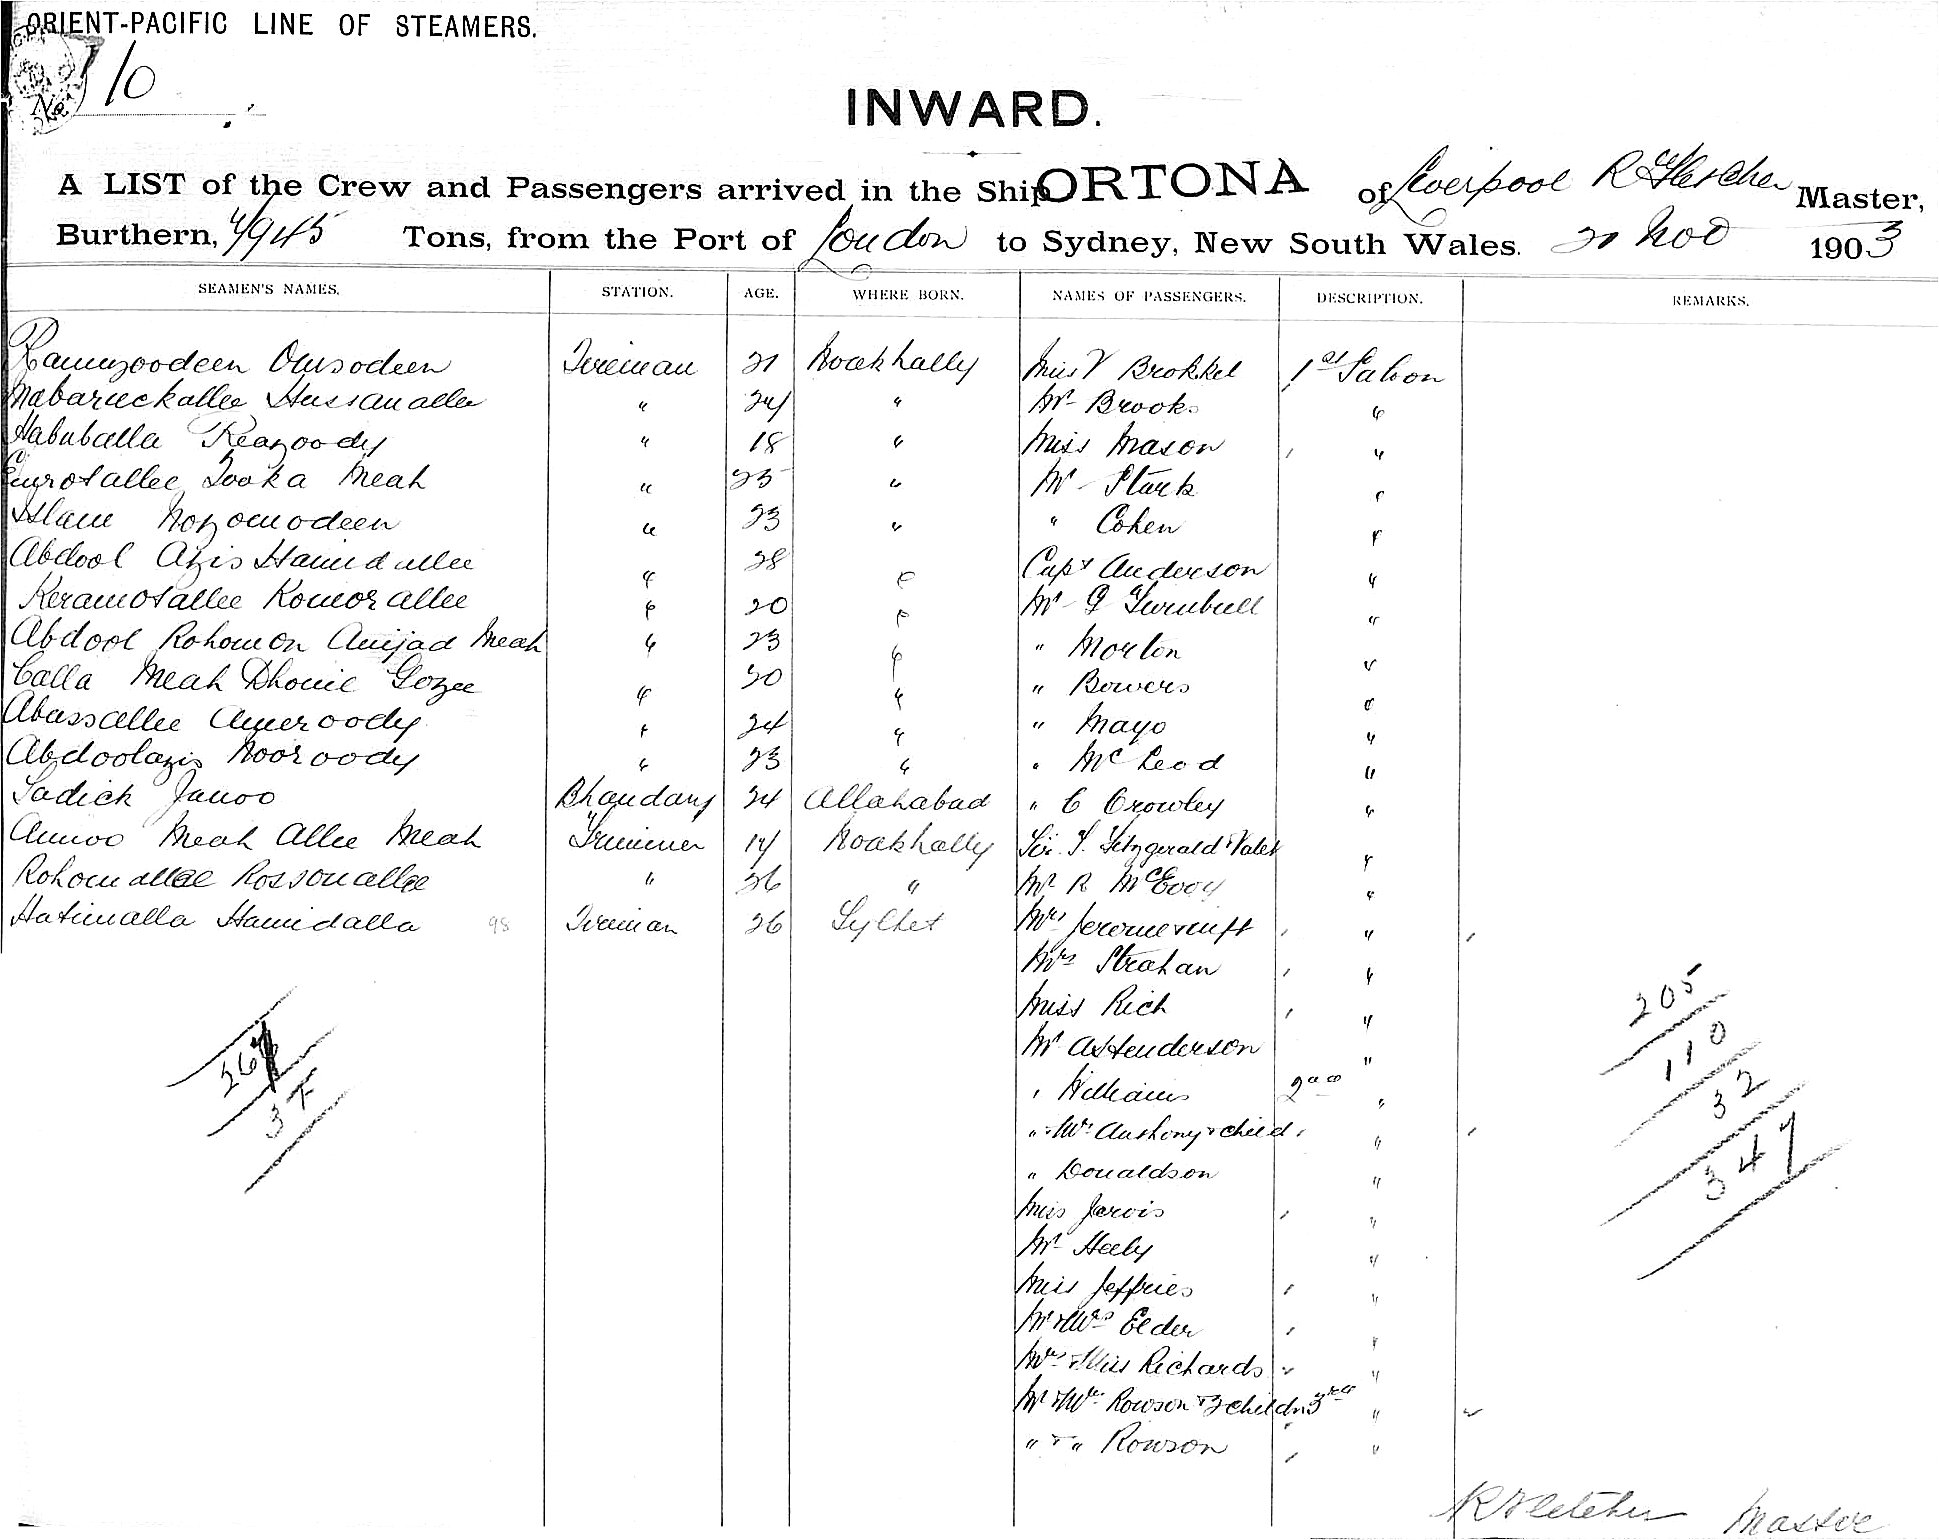 ORIENT-PACIFIC LINE OF STEAMERS.
No 10
INWARD.
A LIST of the Crew and Passengers arrived in the Ship ORTONA of Liverpool R Fletcher Master,
Burthern, 4945 Tons, from the Port of London to Sydney, New South Wales. 20 Nov 1903
SEAMEN'S NAMES. STATION. AGE. WHERE BORN. NAMES OF PASSENGERS. DESCRIPTION. REMARKS.
Ramuzoodeen Omsodeen Fireman 21 Noakhally Miss V Brokkel 1st Saloon
Mabaruckallee Hussanallee " 24 " Mr Brooks "
Habuballa Reazoody " 18 " Miss Mason "
Tooka Meah " 25 " Mr Stark "
Islam Nozomodeen " 23 " " Cohen "
Abdool Azis Hamidallee " 28 " Capt Anderson "
Keramotallee Komorallee " 20 " Mr G Turnbull "
Abdool Rohomon Amjad Meah " 23 " " Morton "
Calla Meah Dhonie Gozee " 30 " " Bowers "
Abassallee Ameroody " 24 " " Mayo "
Abdoolazis Nooroody " 23 " " McLeod "
Sadick Janoo Bhandary 24 Allahabad " C Crowley "
Annoo Meah Allee Meah Trimmer 19 Noakhally Sir T. Fitzgerald & Valet "
Rohomallee Rossonallee " 26 " Mr R McEvoy "
Hatimalla Hamidalla 98 Fireman 26 Sylhet Mrs Jerome & inft "
Mrs Strahan "
Miss Rich "
Mr A Henderson "
" Williams 2nd "
" & Mrs Anthony & child "
" Donaldson "
Miss Jarvis "
Mr Heely "
Miss Jeffries "
Mr & Mrs Elder "
Mrs & Miss Richards "
Mr & Mrs Rowson & 3 childn 3rd "
" & " Rowson "
205
110
32
347
37
R Fletcher Master